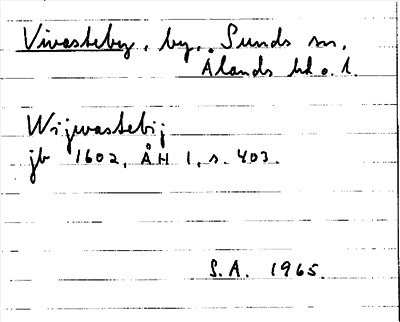 Vivasteby, by, Sunds sn,
Ålands hd o. l.
Wijwastebij
jb 1602, ÅH 1, s. 403.
S.A. 1965.